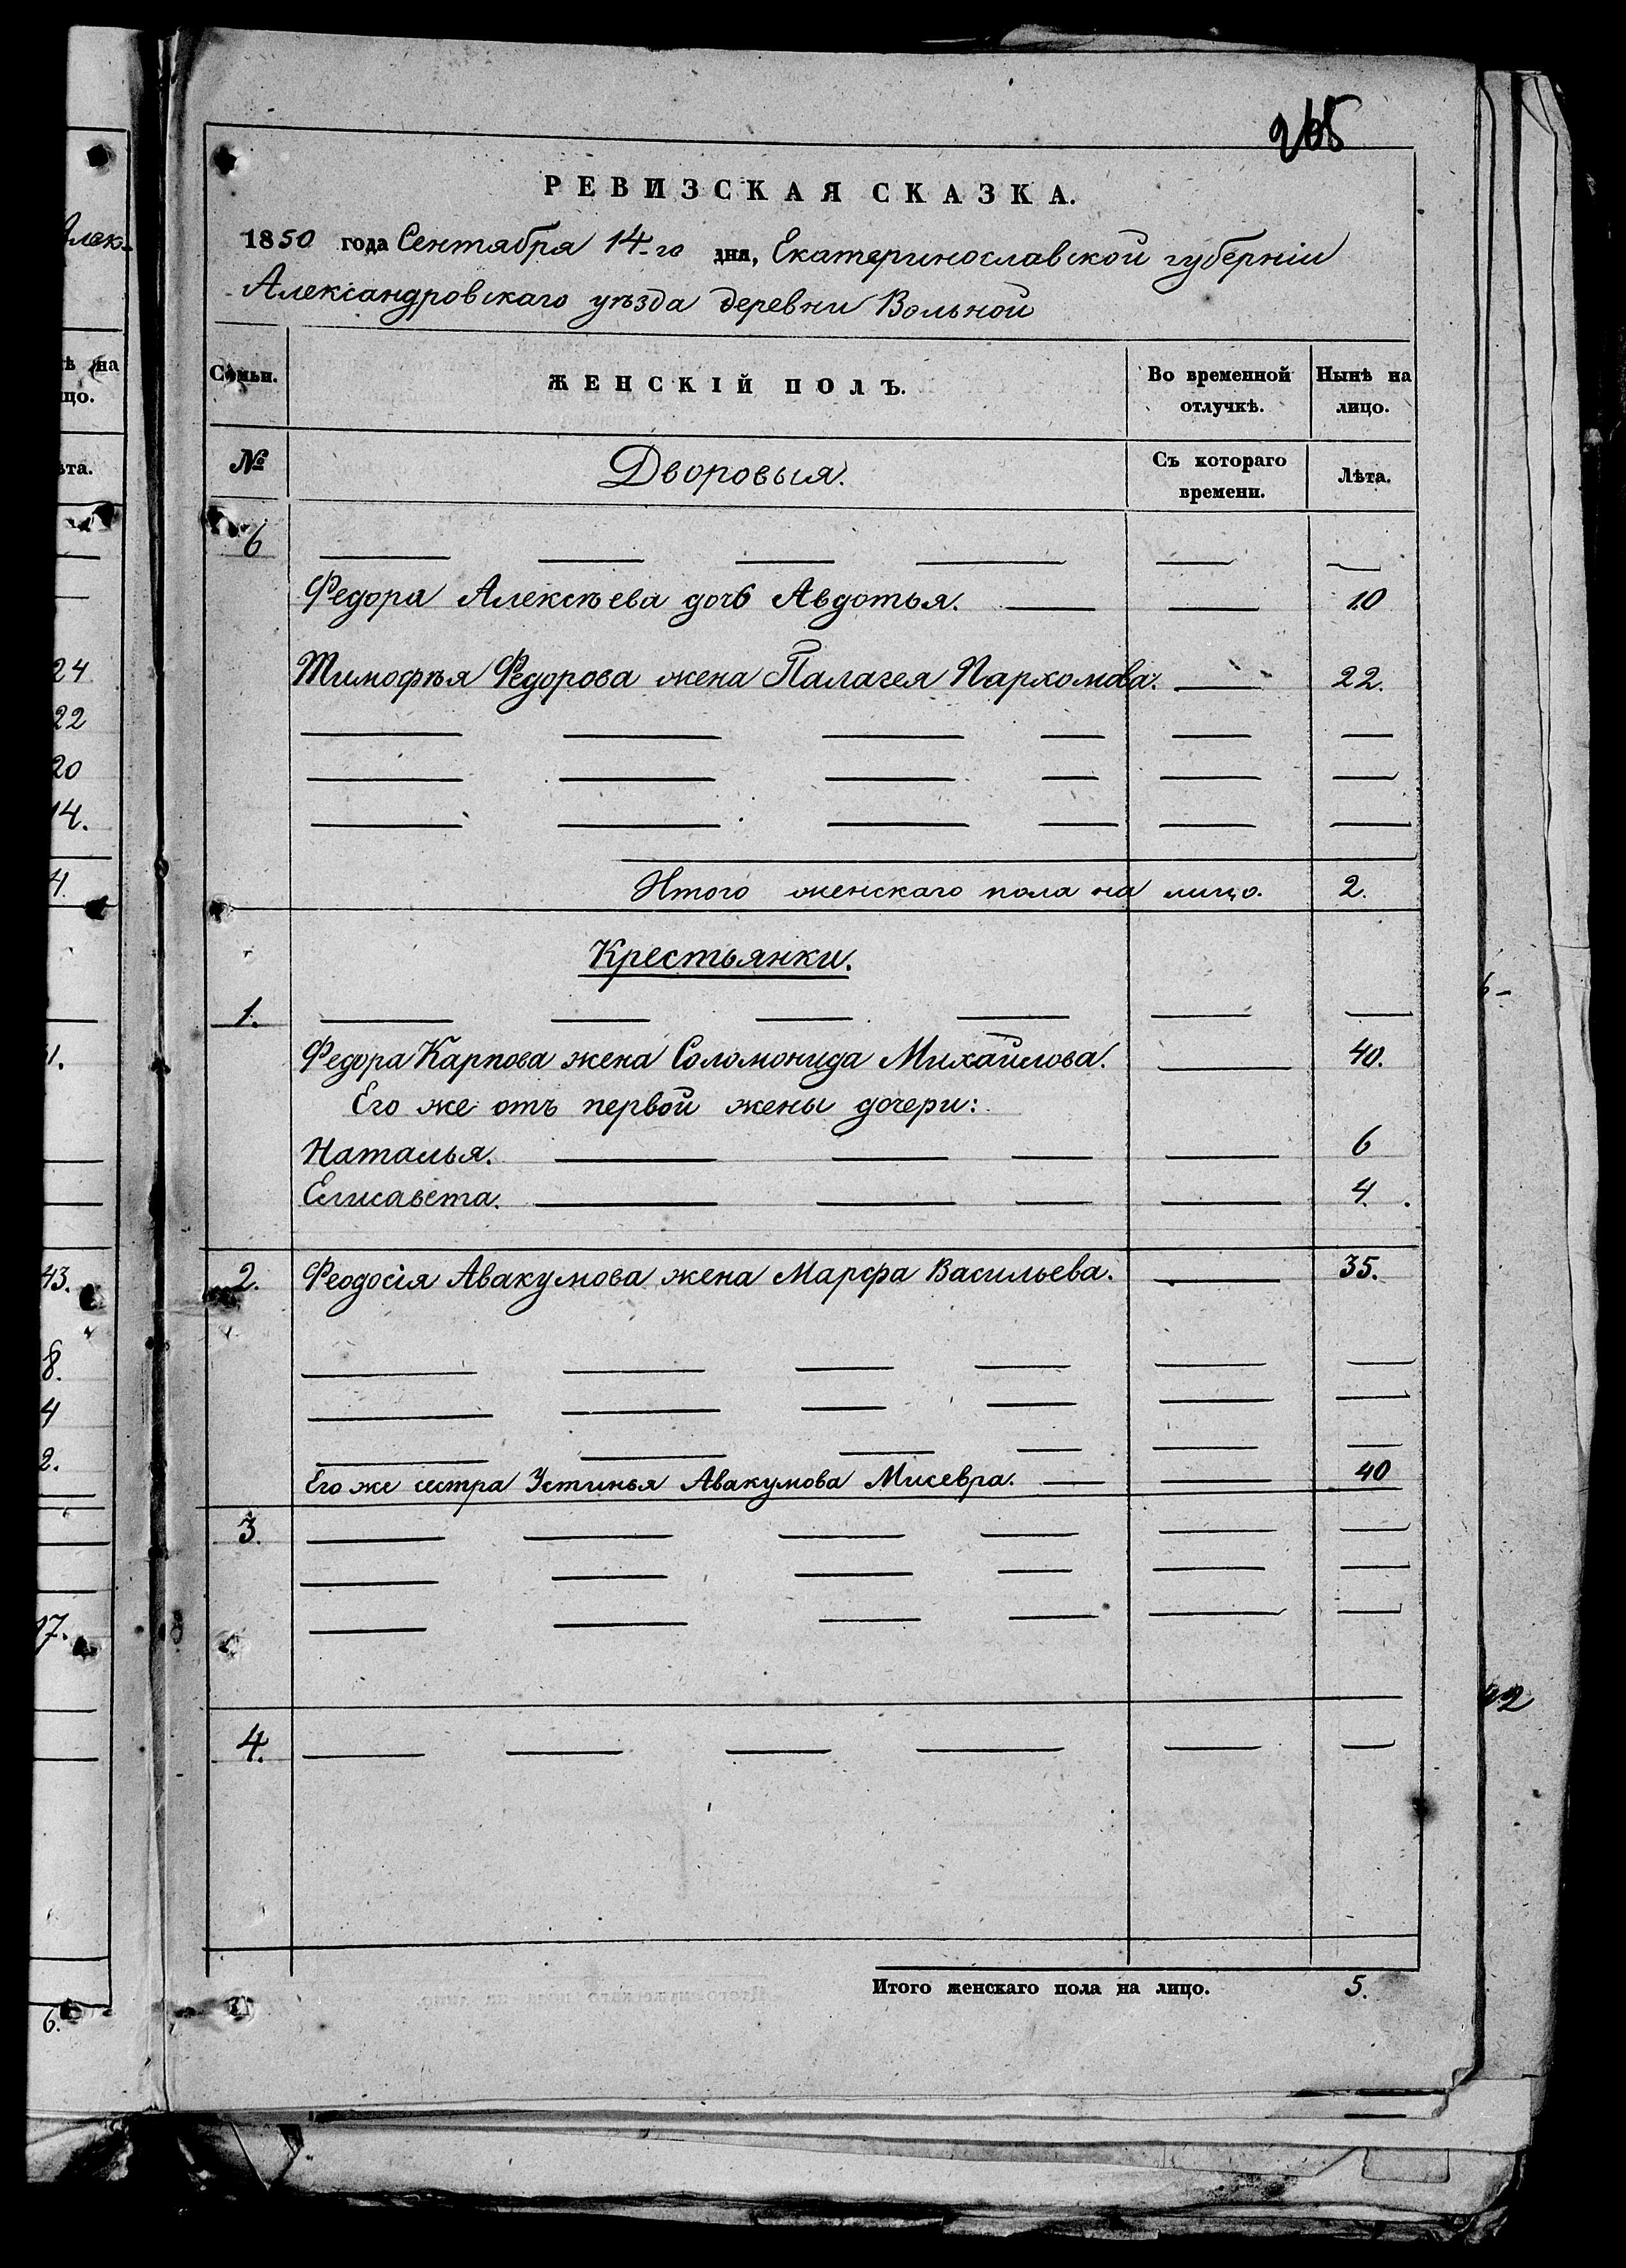 РЕВИЗСКАЯ СКАЗКА.
1850 года Сентября 14-го дня, Екатеринославской губерніи
Александровскаго уѣзда деревни Вольной
Семьи. ЖЕНСКІЙ ПОЛЪ. Во временной отлучкѣ. Нынѣ на лицо.
№ Дворовыя. Съ котораго времени. Лѣта.
6
Федора Алексѣева дочь Авдотья. 10
Тимофѣя Федорова жена Палагея Пархомова. 22.
Итого женскаго пола на лицо. 2.
Крестьянки.
1.
Федора Карпова жена Соломонида Михайлова. 40.
Его же отъ первой жены дочери:
Наталья. 6
Елисавета. 4.
2. Феодосія Авакумова жена Марфа Васильева. 35.
Его же сестра Устинья Авакумова Мисевра. 40
3.
4.
Итого женскаго пола на лицо. 5.
Алек-
ѣ на
цо.
ѣта.
24
22
20
14.
4.
1.
43.
8.
4
2.
17.
6.
42